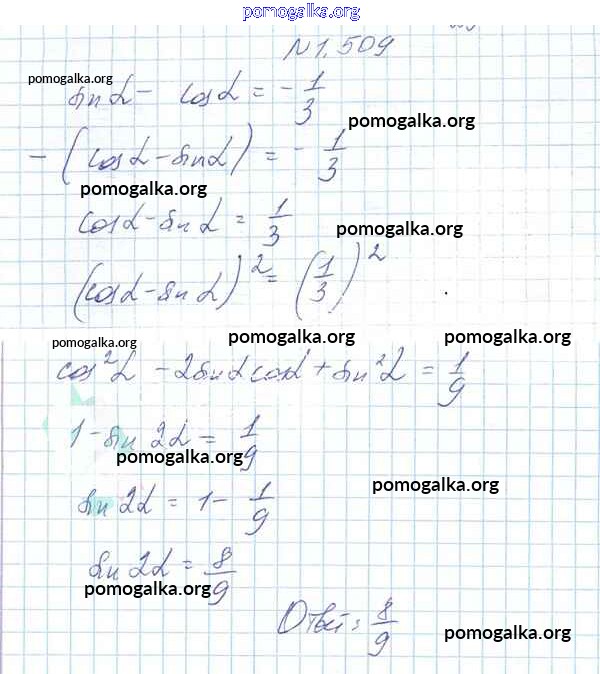 pomogalka.org
N 1.509
pomogalka.org
sin α - cos α = - 1/3
pomogalka.org
- (cos α - sin α) = - 1/3
pomogalka.org
cos α - sin α = 1/3
pomogalka.org
(cos α - sin α)² = (1/3)²
pomogalka.org pomogalka.org pomogalka.org
cos²α - 2 sin α cos α + sin²α = 1/9
1 - sin 2α = 1/9
pomogalka.org
pomogalka.org
sin 2α = 1 - 1/9
sin 2α = 8/9
pomogalka.org
Ответ: 8/9
pomogalka.org
pomogalka.org